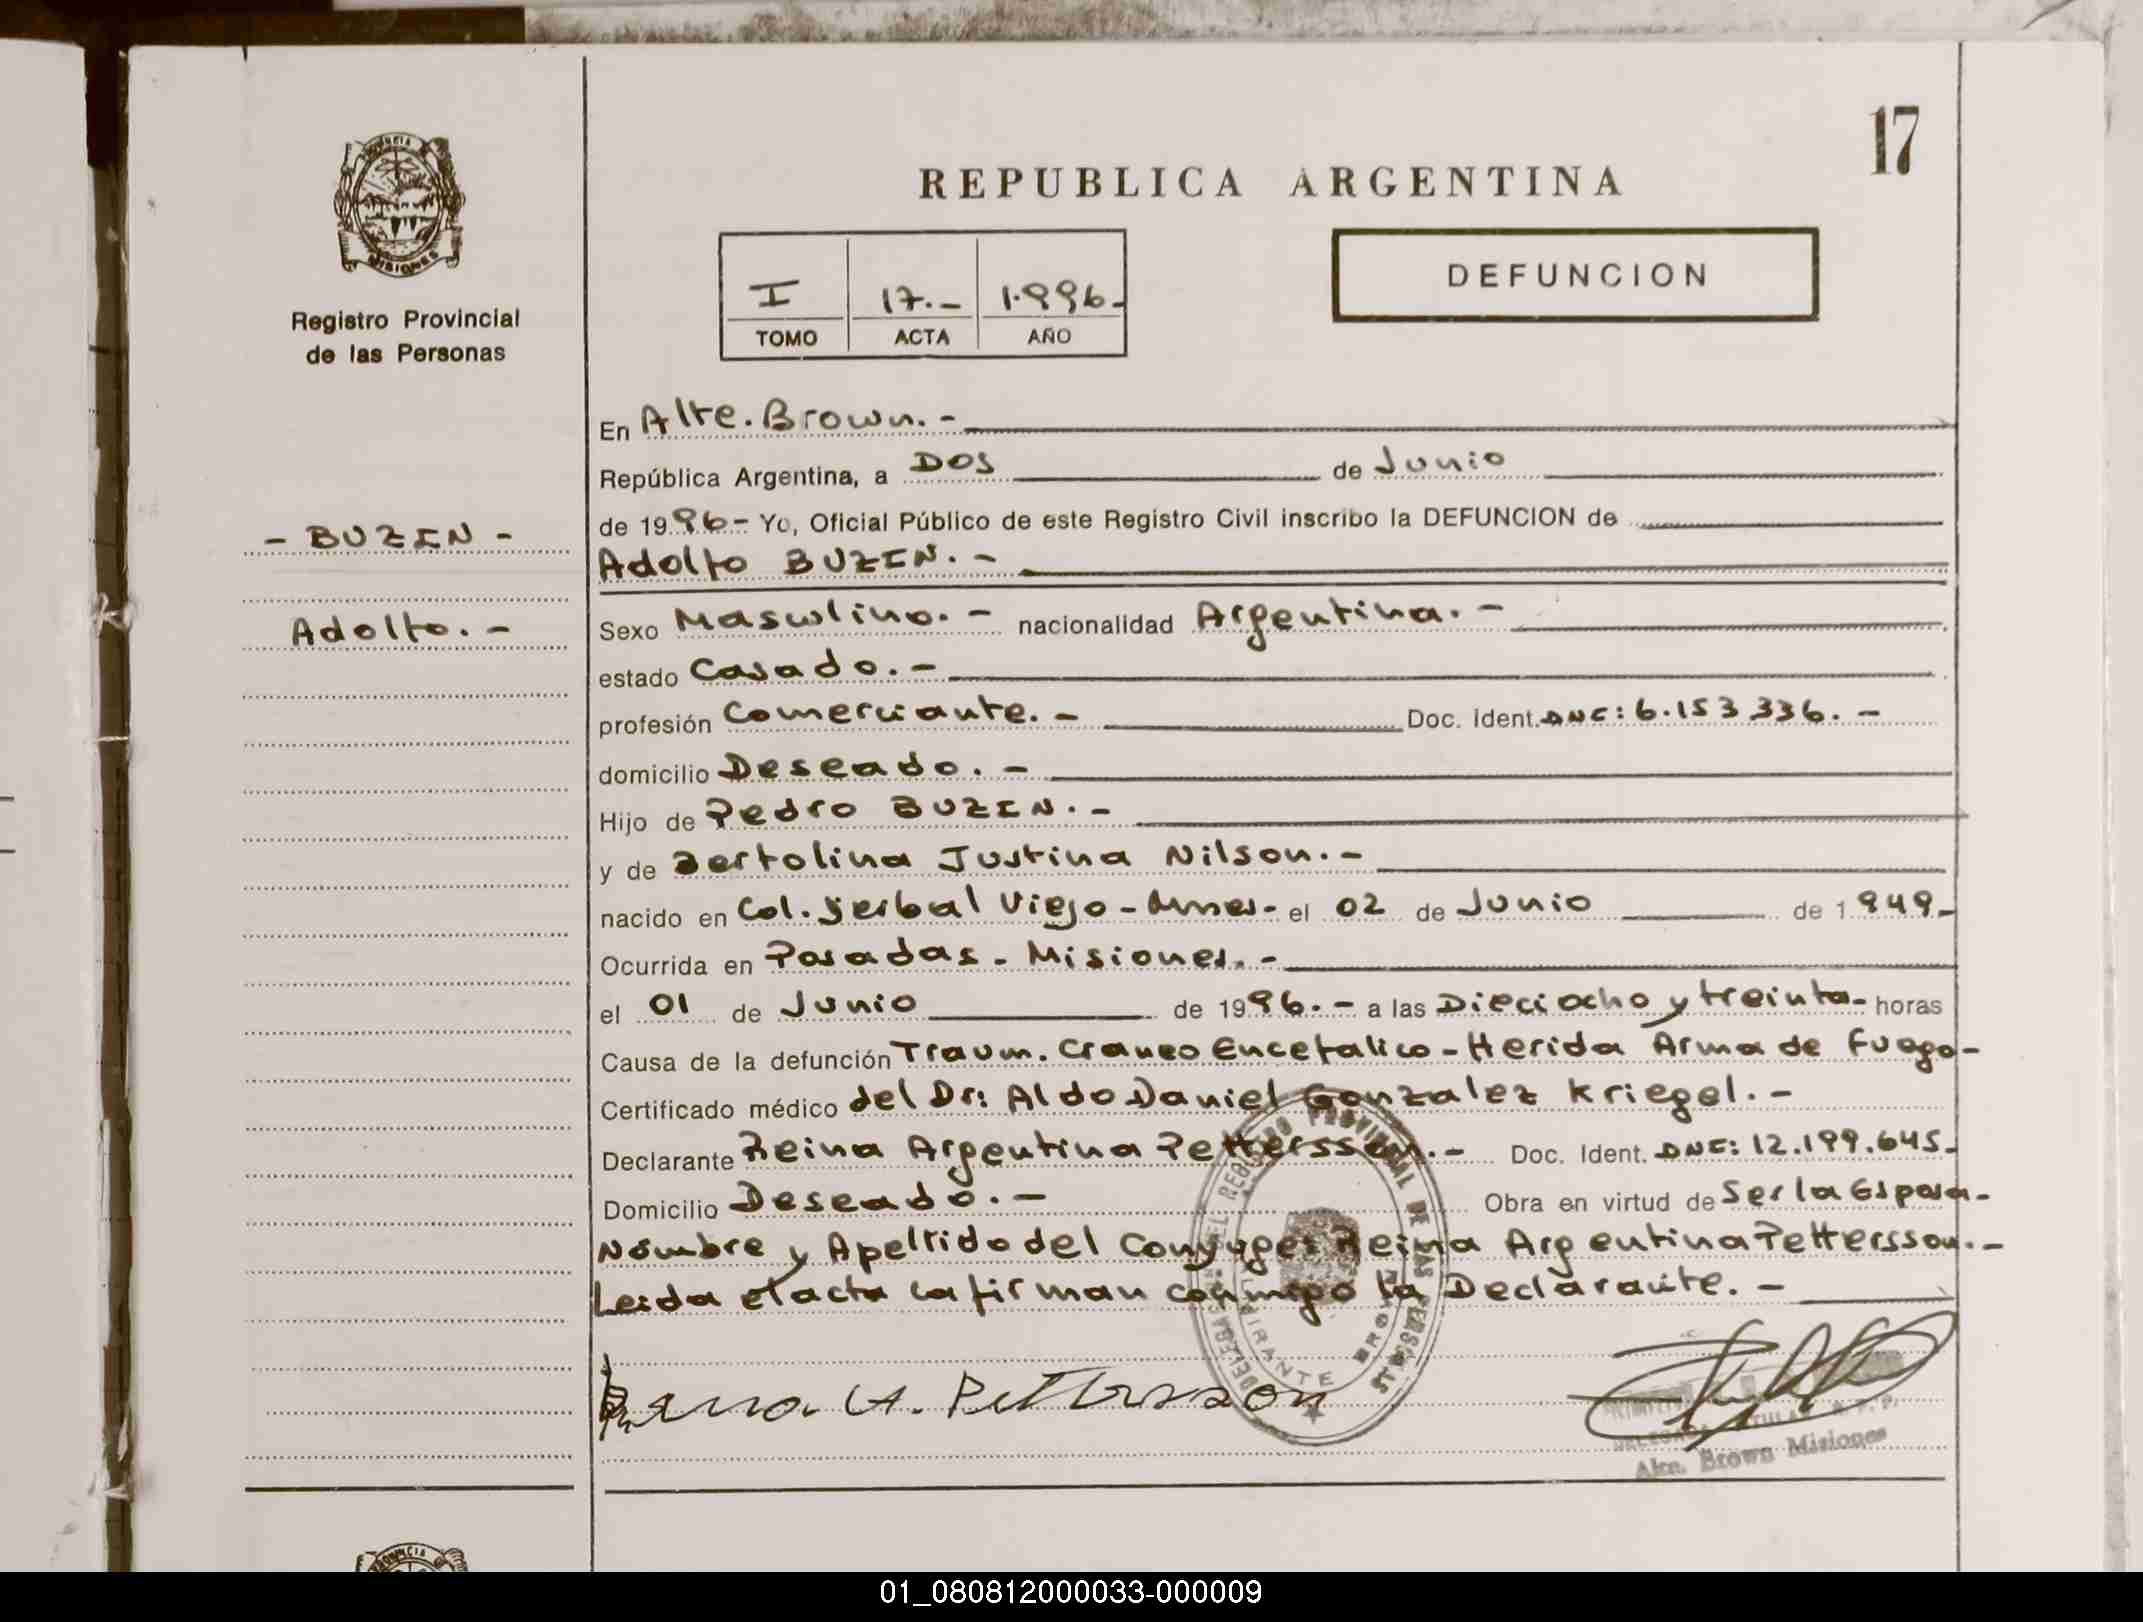 17
REPUBLICA ARGENTINA
PROVINCIA
MISIONES
Registro Provincial
de las Personas
I 17.- 1.996-
TOMO ACTA AÑO
DEFUNCION
En Alte. Brown.-
República Argentina, a DOS de Junio
de 1996- Yo, Oficial Público de este Registro Civil inscribo la DEFUNCION de
- BUZIN -
Adolfo BUZIN.-
Adolfo.-
Sexo Masculino.- nacionalidad Argentina.-
estado Casado.-
profesión Comerciante.- Doc. Ident. DNI: 6.153.336.-
domicilio Deseado.-
Hijo de Pedro BUZIN.-
y de Bertolina Justina Nilson.-
nacido en Col. Yerbal Viejo - Mnes- el 02 de Junio de 1949-
Ocurrida en Posadas - Misiones.-
el 01 de Junio de 1996.- a las Dieciocho y treinta- horas
Causa de la defunción Traum. Craneo Encefalico - Herida Arma de Fuego-
Certificado médico del Dr: Aldo Daniel Gonzalez Kriegel.-
Declarante Reina Argentina Pettersson.- Doc. Ident. DNI: 12.199.645-
Domicilio Deseado.- Obra en virtud de Ser la Esposa-
Nombre y Apellido del Conyuge: Reina Argentina Pettersson.-
Leida el acta la firman conmigo la Declarante.-
DEL REGISTRO PROVINCIAL DE LAS PERSONAS
ALMIRANTE BROWN
Reina A. Pettersson
Alte. Brown Misiones
01_080812000033-000009